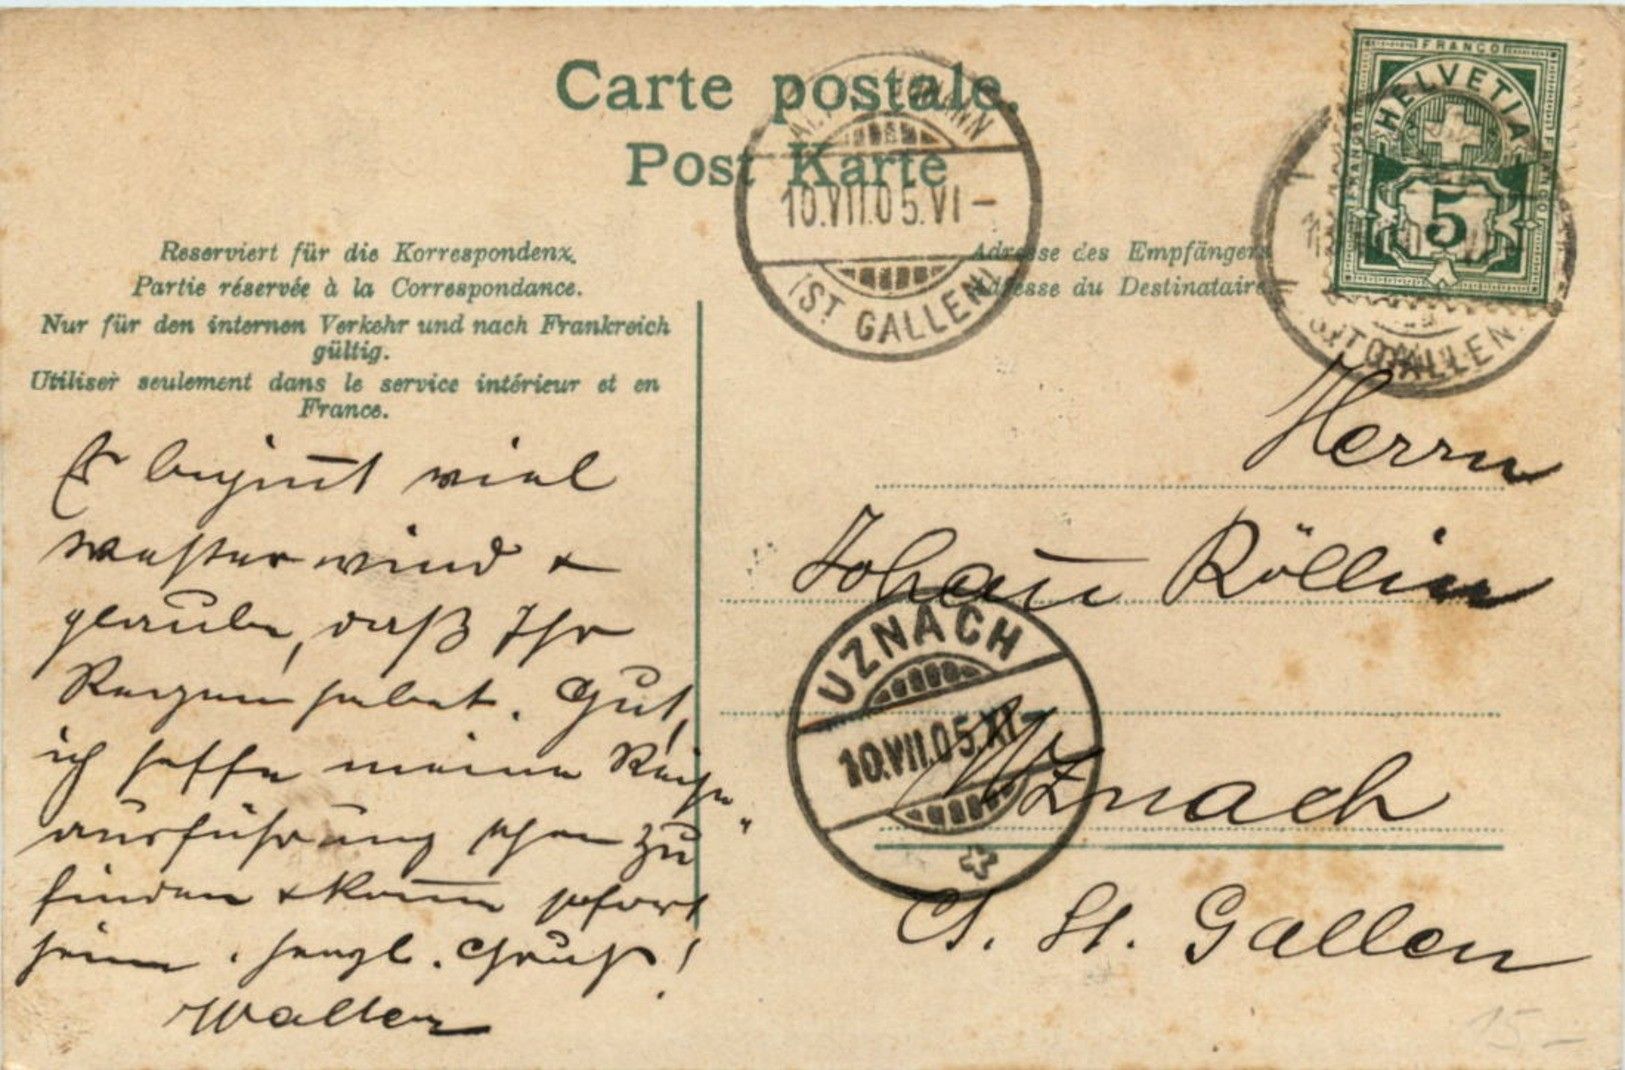 Carte postale.
Post Karte
ALT ST. JOHANN
10.VII.05.VI–
(ST. GALLEN)
FRANCO
HELVETIA
5
ST. GALLEN
Reserviert für die Korrespondenz.
Partie réservée à la Correspondance.
Nur für den internen Verkehr und nach Frankreich
gültig.
Utiliser seulement dans le service intérieur et en
France.
Adresse des Empfängers
Adresse du Destinataire
Es beginnt viel
westerwind &
glaube, daß Ihr
Regen habet. Gut,
ich hoffe meine Reise
ausführung schon zu
finden & kom̅e sofort
heim. herzl. Gruß!
Walter
Herrn
Johan̅ Röllin
UZNACH
10.VII.05.XI–
Uznach
Ct. St. Gallen
15.–